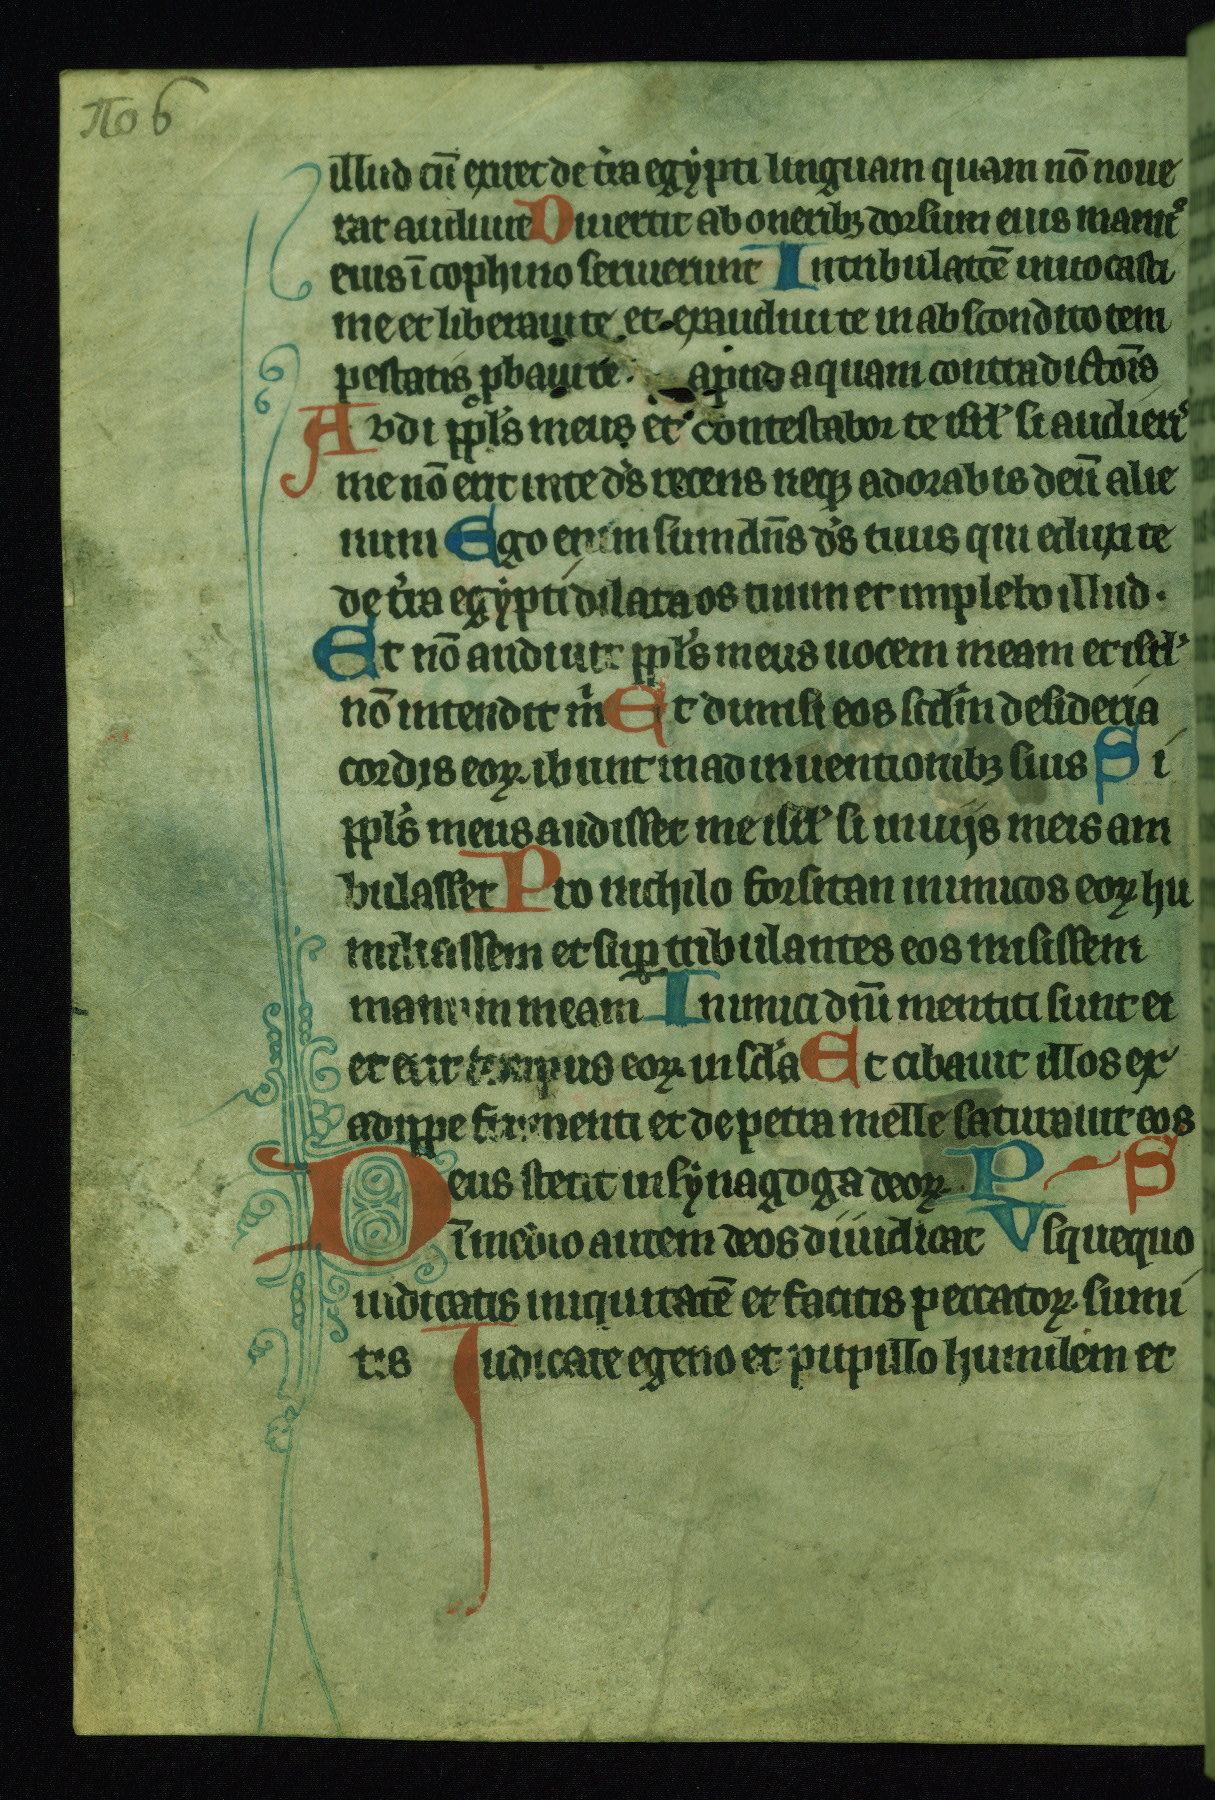 πο 6
illud cū exiret de t̄ra egẏpti linguam quam nō noue
rat audiuit Diuertit ab oneribꝫ dorsum eius manꝰ
eius ī cophino seruierunt In tribulatōe inuocasti
me et liberaui te et exaudiui te in abscondito tem
pestatis ꝓbaui te apud aquam contradictōis
Audi ppl̄s meus et contestabor te isrl̄ si audierꝭ
me nō erit in te d̄s recens neqꝫ adorabis deū alie
num Ego enim sum dn̄s d̄s tuus qui eduxi te
de t̄ra egẏpti dilata os tuum et implebo illud.
Et nō audiuit ppl̄s meus uocem meam et isrl̄
nō intendit m̄ Et dimisi eos scd̄m desideria
cordis eoꝝ ibunt in adinuentionibꝫ suis Si
ppl̄s meus audisset me isrl̄ si in uijs meis am
bulasset Pro nichilo forsitan inimicos eoꝝ hu
miliassem et suꝑ tribulantes eos misissem
manum meam Inimici dn̄i mentiti sunt ei
et erit tempus eoꝝ in scl̄a Et cibauit illos ex
adippe frumenti et de petra melle saturauit eos
Deus stetit in sẏnagoga deoꝝ P S
ī medio autem deos diiudicat Vsquequo
iudicatis iniquitatē et facies peccatoꝝ sumi
tis Iudicate egeno et pupillo humilem et